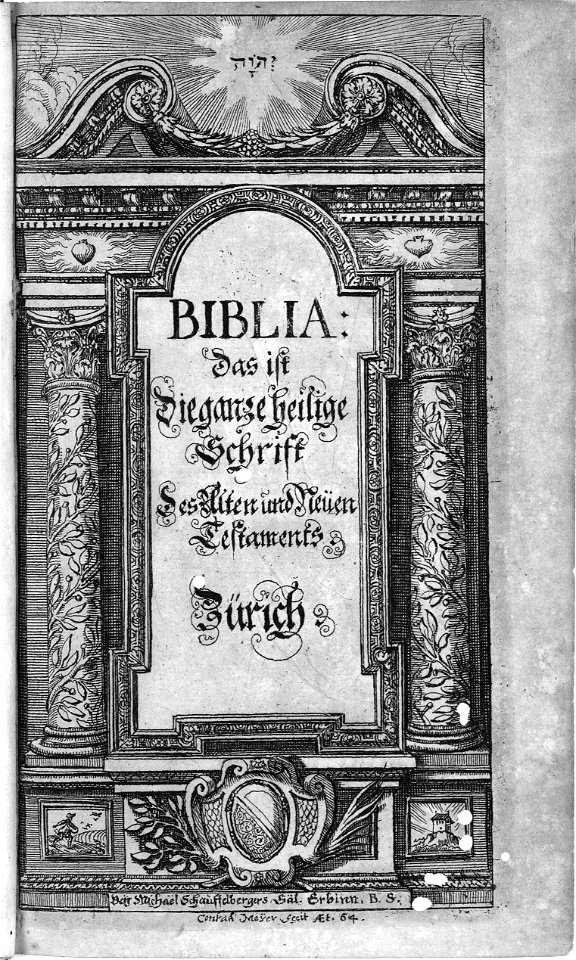 יְהֹוָה
BIBLIA:
Das ist
Die ganze heilige
Schrift
Des Alten und Neüen
Testaments.
Zürich.
Beÿ Michael Schauffelbergers Säl. Erbinn. B. S.
Conrad Meÿer fecit Æt. 64.